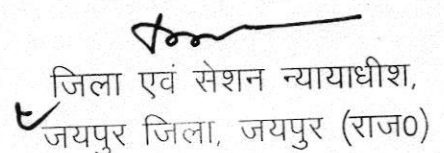 जिला एवं सेशन न्यायाधीश,
जयपुर जिला, जयपुर (राज0)